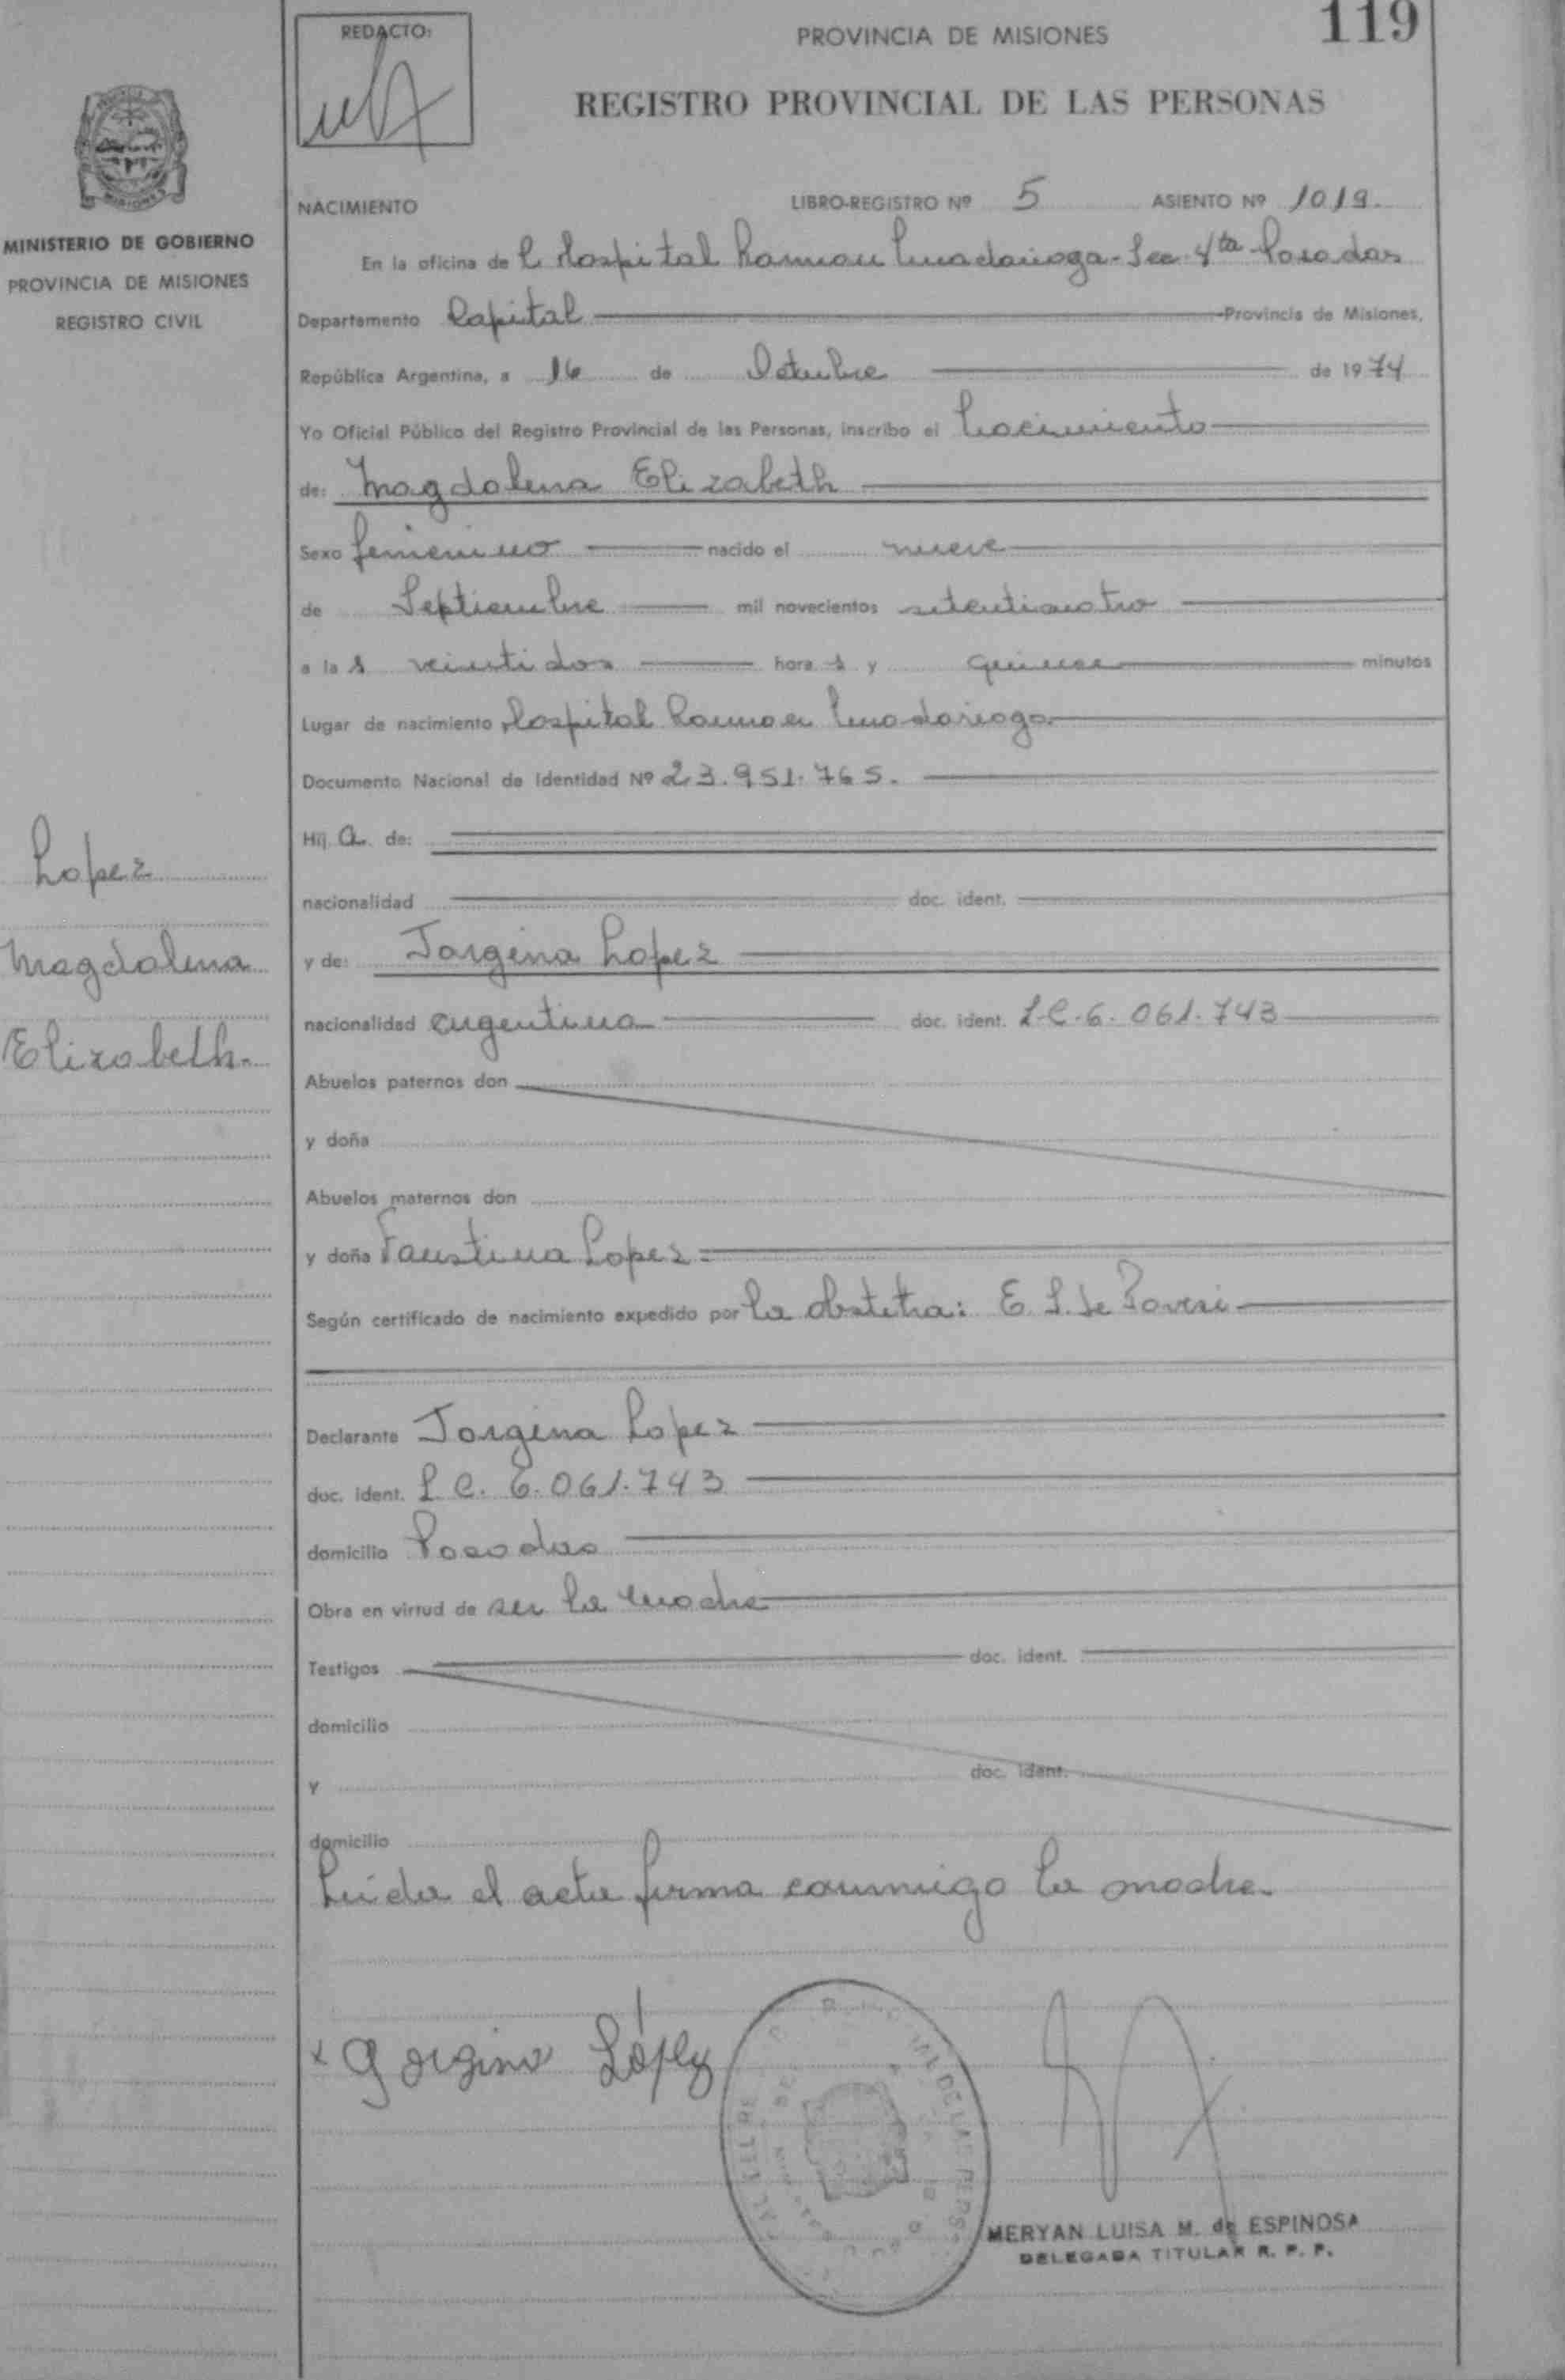 REDACTO:
PROVINCIA DE MISIONES
119
REGISTRO PROVINCIAL DE LAS PERSONAS
MINISTERIO DE GOBIERNO
PROVINCIA DE MISIONES
REGISTRO CIVIL
NACIMIENTO LIBRO-REGISTRO Nº 5 ASIENTO Nº 1019.
En la oficina de l Hospital Ramon Madariaga - Sec. 4ta Posadas
Departamento Capital Provincia de Misiones,
República Argentina, a 16 de Octubre de 1974
Yo Oficial Público del Registro Provincial de las Personas, inscribo el Nacimiento
de: Magdalena Elizabeth
Sexo femenino nacido el nueve
de Septiembre mil novecientos setenticuatro
a la s veintidos hora s y quince minutos
Lugar de nacimiento Hospital Ramon Madariaga.
Documento Nacional de Identidad Nº 23.951.765.
Hij a de:
nacionalidad doc. ident.
y de: Jorgina Lopez
nacionalidad argentina doc. ident. L.C. 6.061.743
Abuelos paternos don
y doña
Abuelos maternos don
y doña Faustina Lopez
Según certificado de nacimiento expedido por la obstetra: E. S. de
Declarante Jorgina Lopez
doc. ident. L.C. 6.061.743
domicilio Posadas
Obra en virtud de ser la madre
Testigos doc. ident.
domicilio
y doc. ident.
domicilio
Leida el acta firma conmigo la madre.
Lopez
Magdalena
Elizabeth.
x Gorgina López
MERYAN LUISA M. de ESPINOSA
DELEGADA TITULAR R. P. P.